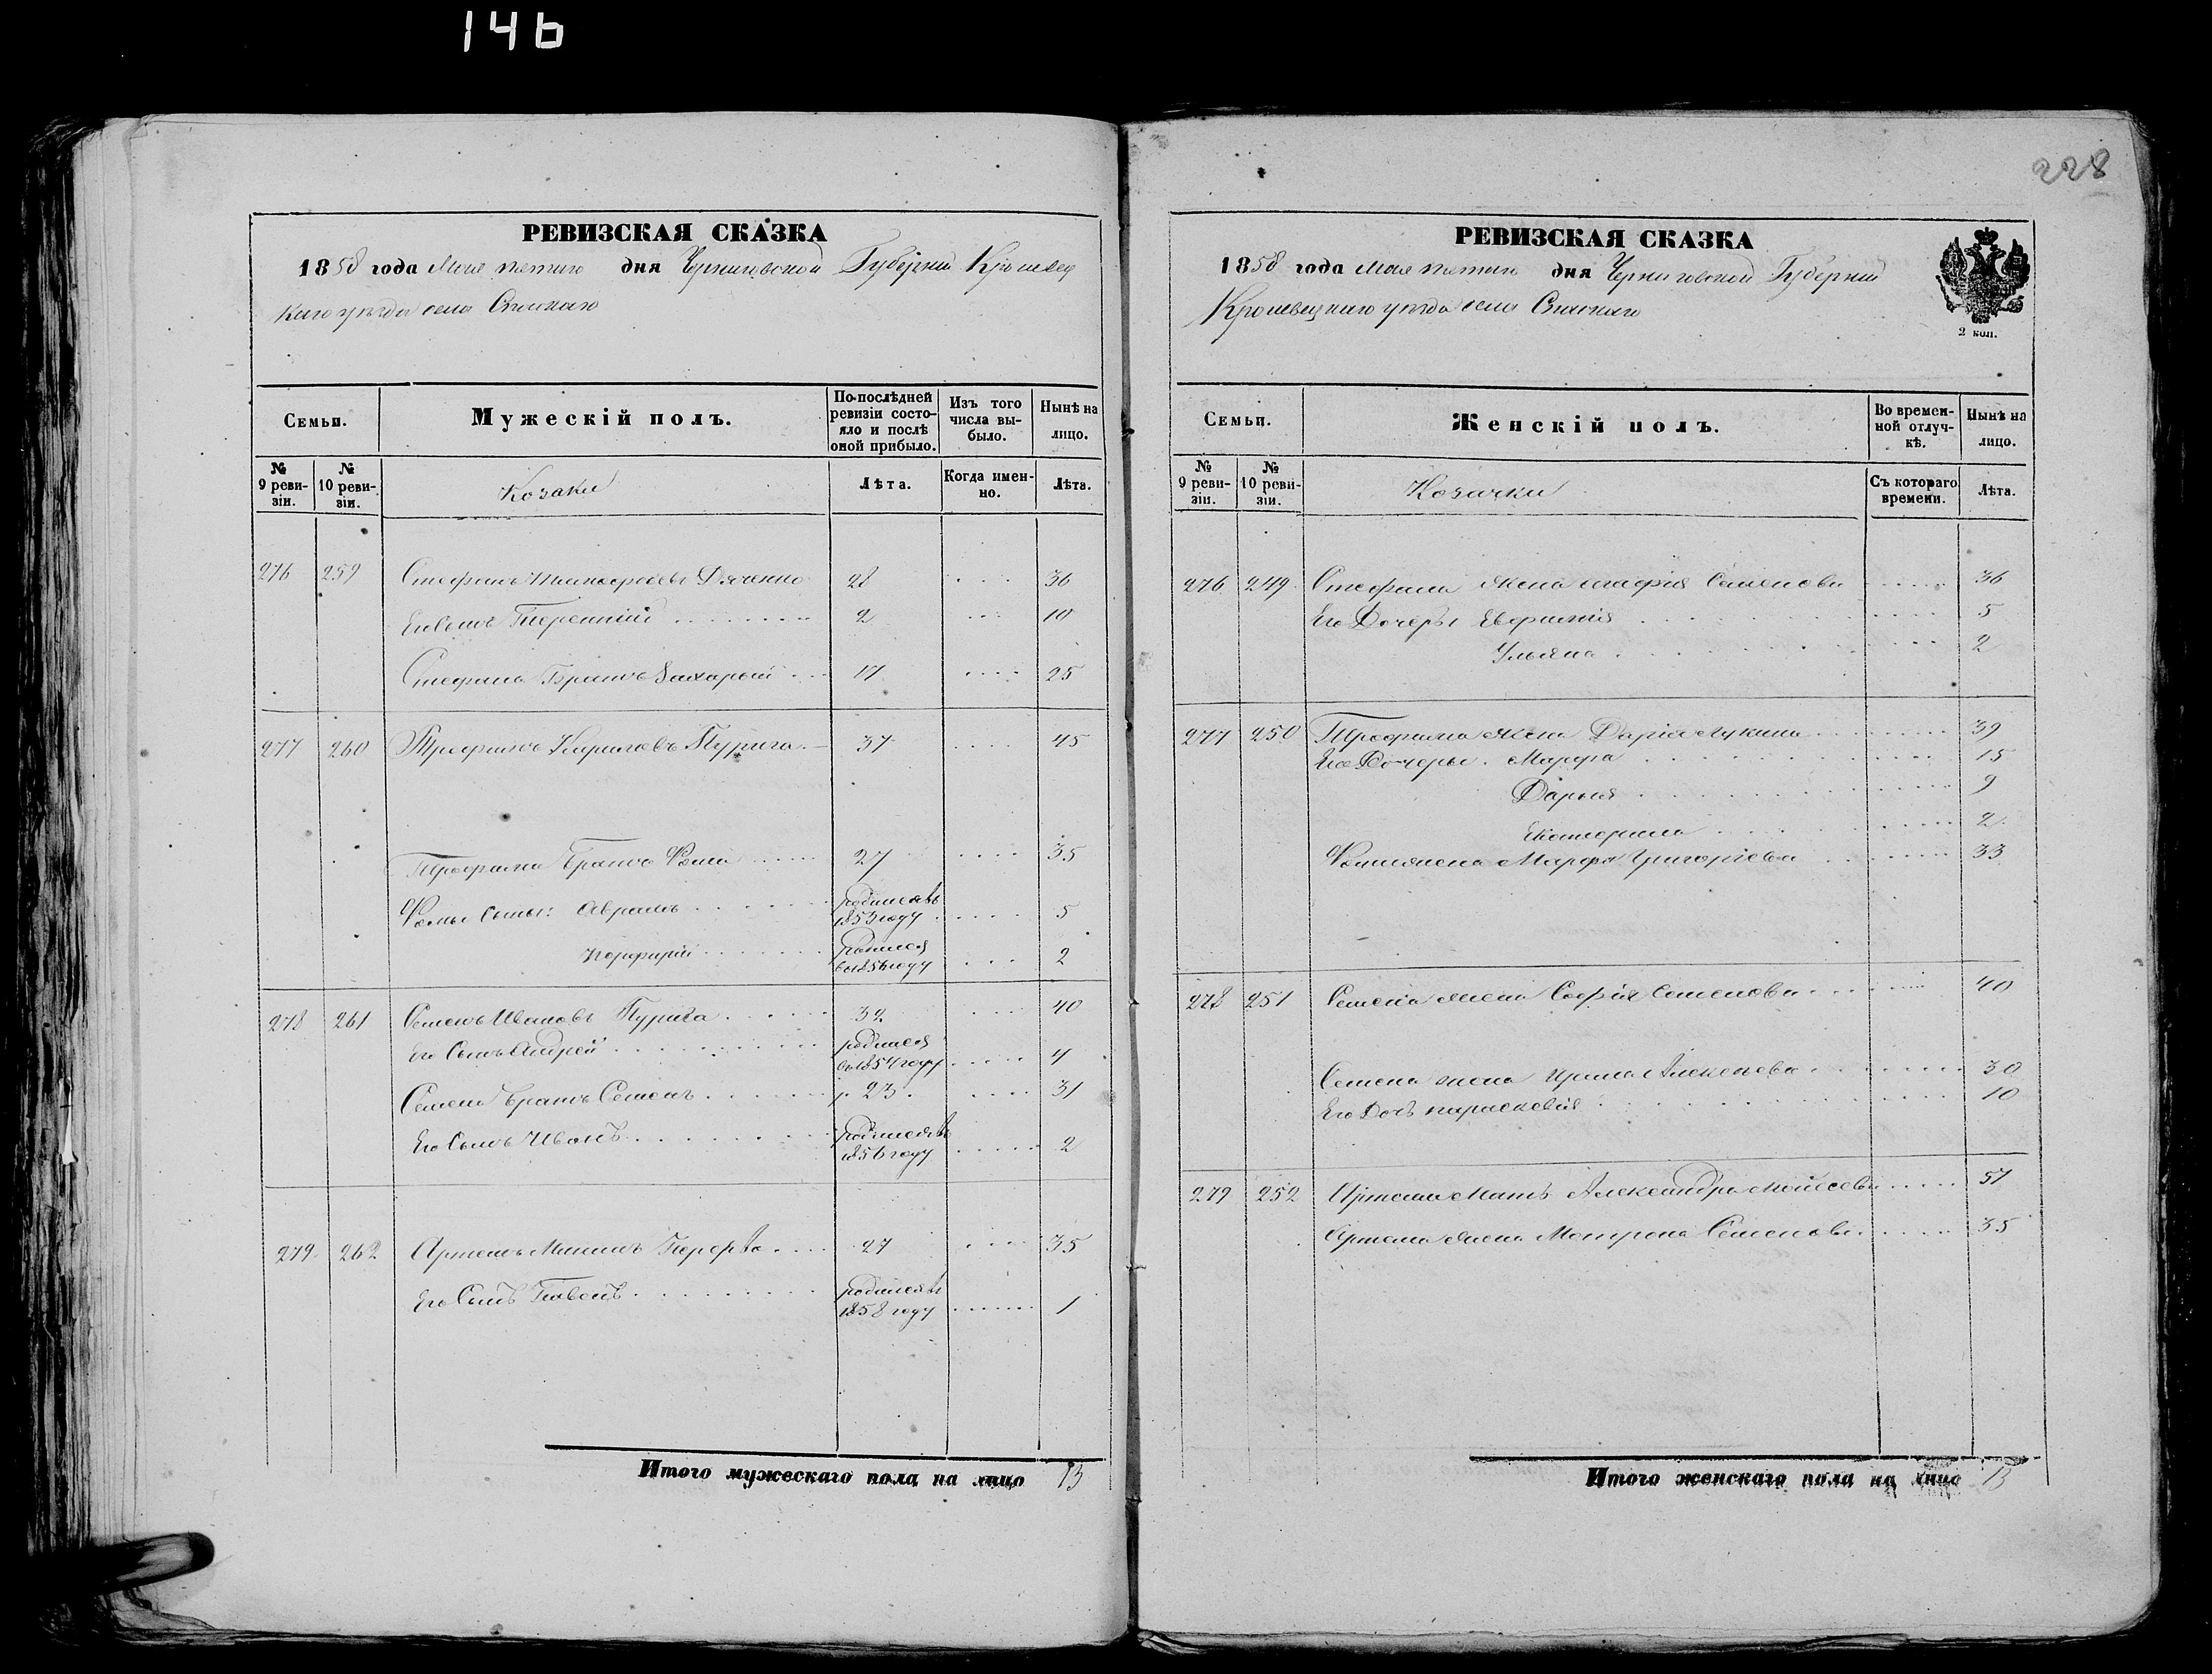 146
228
РЕВИЗСКАЯ СКАЗКА
1858 года Мая пятаго дня Черниговской Губерніи Кролевец
каго уѣзда села Спаскаго
Семьи.
Мужескій полъ.
По-послѣдней ревизіи состо-яло и послѣ оной прибыло.
Изъ того числа вы-было.
Нынѣ на лицо.
№ 9 реви-зіи.
№ 10 реви-зіи.
Козаки
Лѣта.
Когда имен-но.
Лѣта.
276 259 Стефанъ Дяченко 28 36
Его Сынъ Терентій 2 10
Стефана Братъ Захарій 17 25
277 260 Трофимъ Кириловъ Пурига 37 45
Трофима Братъ Фома 27 35
Фомы Сыны: Аврамъ родился въ 1853 году 5
Порфирій родился въ 1856 году 2
278 261 Семенъ Ивановъ Пурига 32 40
Его Сынъ Андрей родился въ 1854 году 4
Семена Братъ Семенъ 23 31
Его Сынъ Иванъ родился въ 1856 году 2
279 262 Артемъ Мининъ 27 35
Его Сынъ родился въ 1858 году 1
Итого мужескаго пола на лицо 13
РЕВИЗСКАЯ СКАЗКА
1858 года Мая пятаго дня Черниговской Губерніи
Кролевецкаго уѣзда села Спаскаго
2 коп.
Семьи.
Женскій полъ.
Во времен-ной отлуч-кѣ.
Нынѣ на лицо.
№ 9 реви-зіи.
№ 10 реви-зіи.
Козачки
Съ котораго времени.
Лѣта.
276 249 Стефана жена Семенова 36
Его Дочеры Евфимія 5
Ульяна 2
277 250 Трофима жена Дарія Лукина 39
Его Дочеры. Марфа 15
Дарья 9
Екатерина 2
Фомы жена Марфа Григоріева 33
278 251 Семена жена Софія Семенова 40
Семена жена Ирина Алексеева 30
Его Дочь Параскевія 10
279 252 Артема Мать Александра Моисеева 51
Артема жена Мотрона Семенова 35
Итого женскаго пола на лицо 13